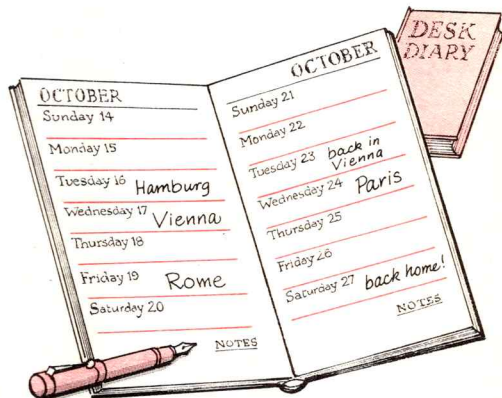 DESK
DIARY
OCTOBER
Sunday 14
Monday 15
Tuesday 16 Hamburg
Wednesday 17 Vienna
Thursday 18
Friday 19 Rome
Saturday 20
NOTES
OCTOBER
Sunday 21
Monday 22
Tuesday 23 back in
Vienna
Wednesday 24 Paris
Thursday 25
Friday 26
Saturday 27 back home!
NOTES